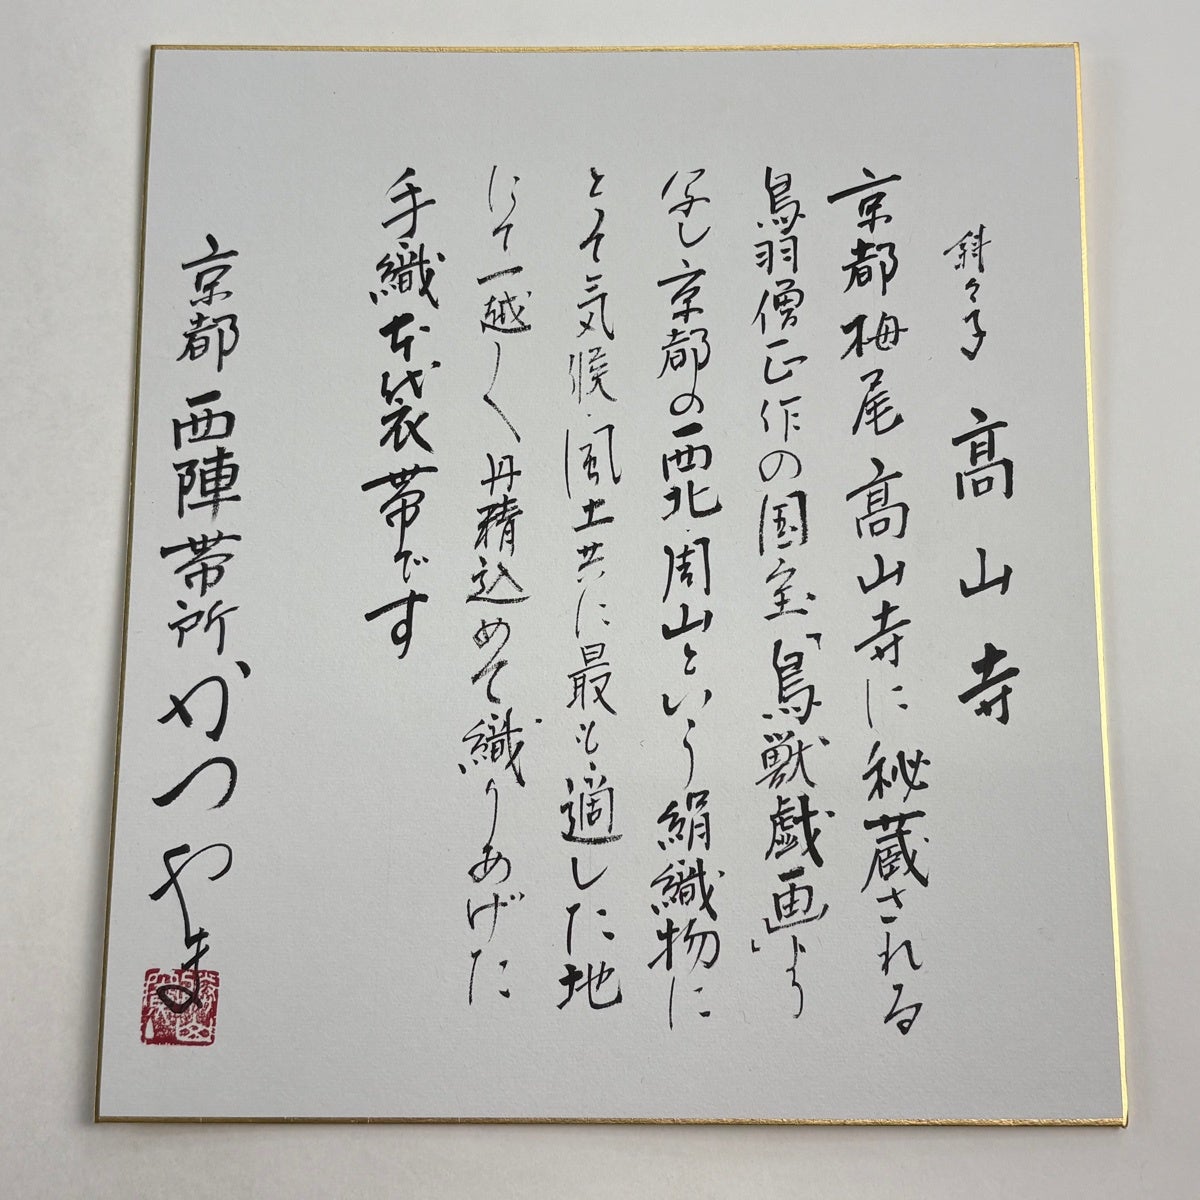 斜々子 高山寺
京都栂尾高山寺に秘蔵される
鳥羽僧正作の国宝「鳥獣戯画」より
写し京都の西北・周山という絹織物に
とって気候・風土共に最も適した地
にて一越〳〵丹精込めて織りあげた
手織本袋帯です
京都 西陣帯所かつやま